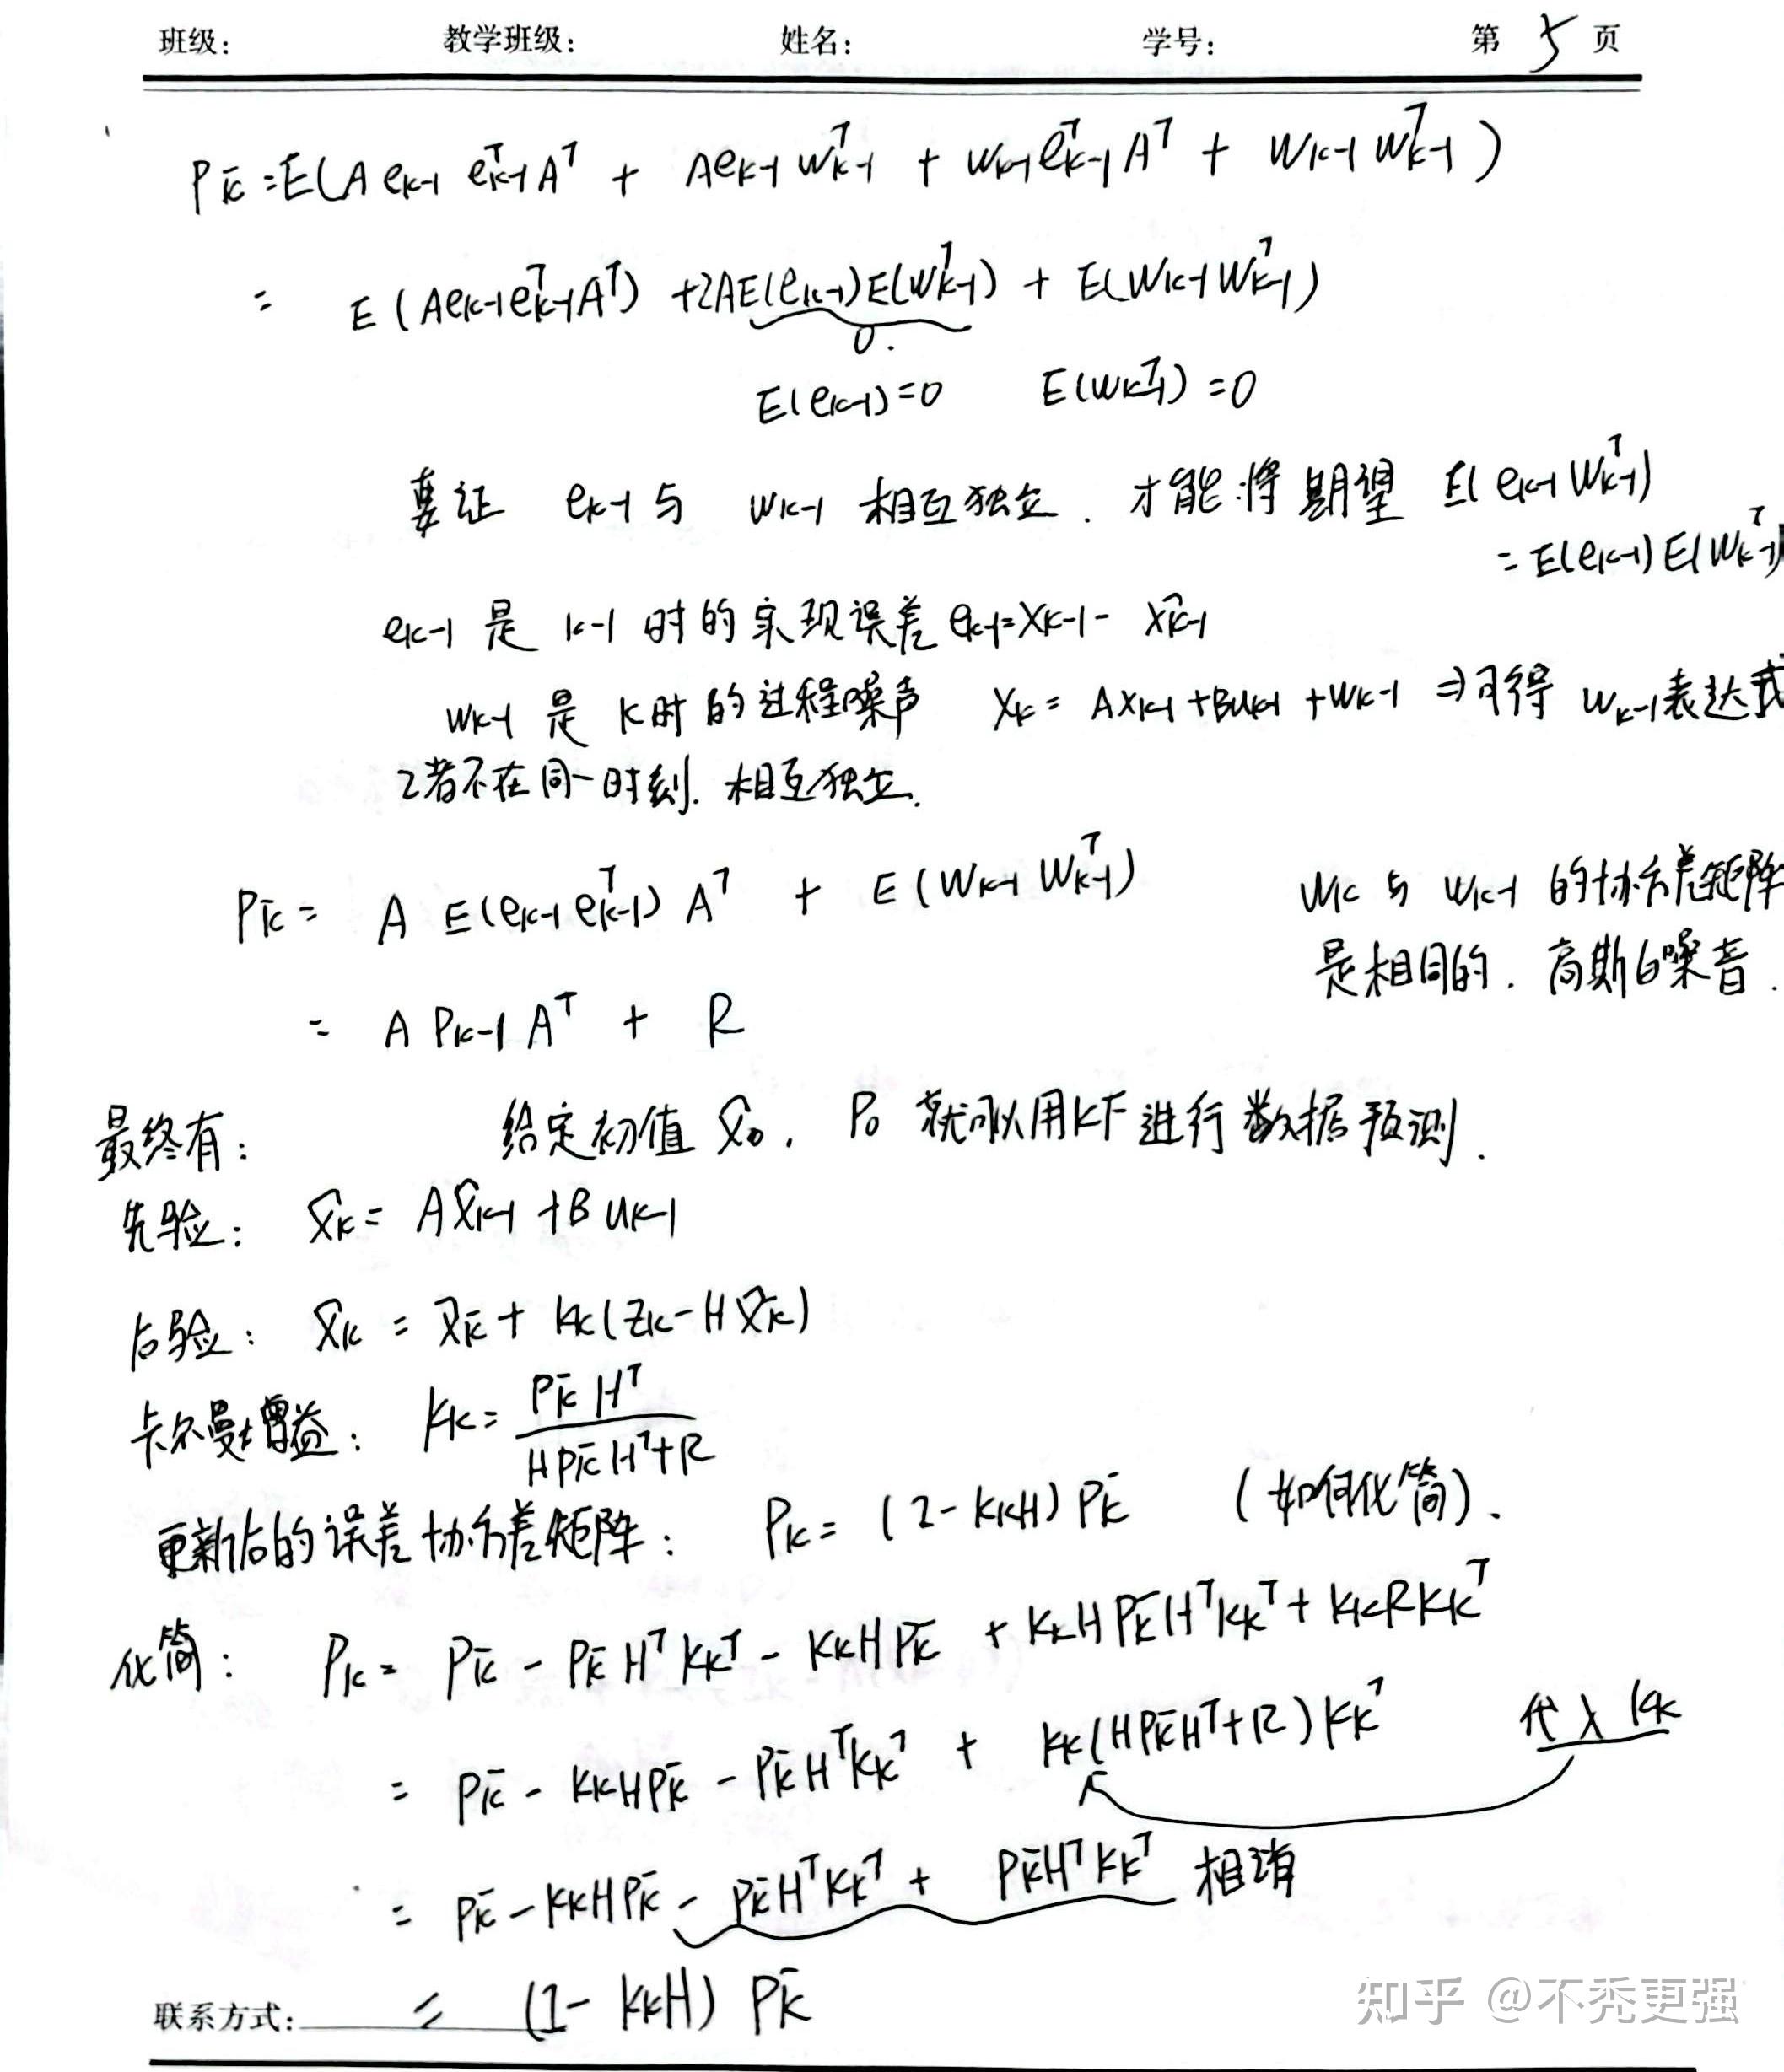 班级: 教学班级: 姓名: 学号: 第 5 页
P_k^- = E(A e_{k-1} e_{k-1}^T A^T + A e_{k-1} w_{k-1}^T + w_{k-1} e_{k-1}^T A^T + w_{k-1} w_{k-1}^T)
= E(A e_{k-1} e_{k-1}^T A^T) + 2AE(e_{k-1})E(w_{k-1}^T) + E(w_{k-1} w_{k-1}^T)
0.
E(e_{k-1})=0 E(w_{k-1}^T)=0
要证 e_{k-1} 与 w_{k-1} 相互独立. 才能将期望 E(e_{k-1} w_{k-1}^T)
= E(e_{k-1})E(w_{k-1}^T)
e_{k-1} 是 k-1 时的实现误差 e_{k-1}=x_{k-1} - x̂_{k-1}
w_{k-1} 是 k时的过程噪声 x_k = Ax_{k-1}+Bu_{k-1}+w_{k-1} ⇒可得 w_{k-1}表达式
2者不在同一时刻. 相互独立.
P_k^- = A E(e_{k-1} e_{k-1}^T) A^T + E(w_{k-1} w_{k-1}^T) w_k 与 w_{k-1} 的协方差矩阵
是相同的. 高斯白噪音.
= A P_{k-1} A^T + R
最终有: 给定初值 x̂_0. P_0 就可以用KF进行数据预测.
先验: x̂_k = Ax̂_{k-1} + B u_{k-1}
后验: x̂_k = x̂_k^- + k_k(z_k - H x̂_k^-)
卡尔曼增益: k_k = \frac{P_k^- H^T}{H P_k^- H^T + R}
更新后的误差协方差矩阵: P_k = (I - k_kH) P_k^- (如何化简).
化简: P_k = P_k^- - P_k^- H^T k_k^T - k_kHP_k^- + k_kHP_k^-H^Tk_k^T + k_kRk_k^T
= P_k^- - k_kHP_k^- - P_k^-H^Tk_k^T + k_k(HP_k^-H^T+R)k_k^T 代入 k_k
= P_k^- - k_kHP_k^- - P_k^-H^Tk_k^T + P_k^-H^Tk_k^T 相消
= (I - k_kH) P_k^-
联系方式:
知乎 @不秃更强